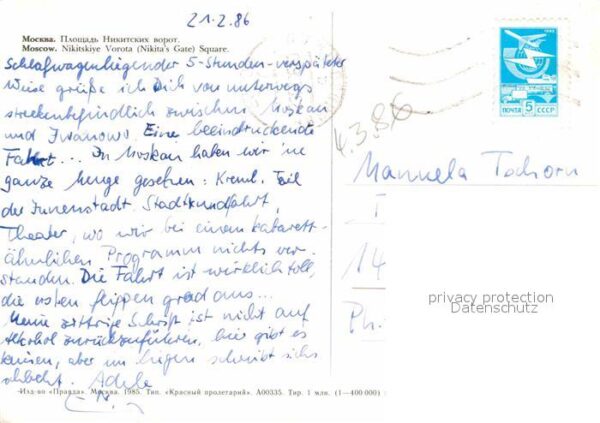 21.2.86
Москва. Площадь Никитских ворот.
Moscow. Nikitskiye Vorota (Nikita's Gate) Square.
Schlafwagenliegender 5-Stunden-verspäteter
Weise grüße ich Dich von unterwegs
streckenbefindlich zwischen Moskau
und Iwanowo. Eine beeindruckende
Fahrt... In Moskau haben wir 'ne
ganze Menge gesehen: Kreml, Teil
der Innenstadt, Stadtrundfahrt,
Theater, wo wir bei einem kabarett-
ähnlichen Programm nichts ver-
standen. Die Fahrt ist wirklich toll,
die ersten flippen grad aus...
Meine zittrige Schrift ist nicht auf
Alkohol zurückzuführen, hier gibt es
keinen, aber im liegen schreibt sichs
schlecht. Adele
Изд-во «Правда». Москва. 1985. Тип. «Красный пролетарий». А00335. Тир. 1 млн. (1—400 000)
1982
ПОЧТА 5 СССР
4.3.86
Manuela Tschorn
14
Ph.
privacy protection
Datenschutz